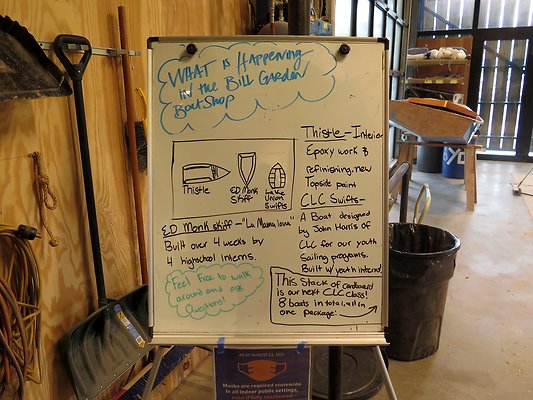 WHAT is Happening
in the Bill Garden
BoatShop
Thistle
ED Monk
Skiff
Lake
Union
Swifts
ED Monk skiff - "La Mama Iova"
Built over 4 weeks by
4 highschool interns.
Feel Free to walk
around and ask
Questions!
Thistle-Interior
Epoxy work &
refinishing, new
Topside paint
CLC Swifts-
A Boat designed
by John Harris of
CLC for our youth
Sailing programs.
Built w/ youth interns!
This Stack of cardboard
is our next CLC class!
8 boats in total, all in
one package!
AS OF AUGUST 23, 2021
Masks are required statewide
in all indoor public settings,